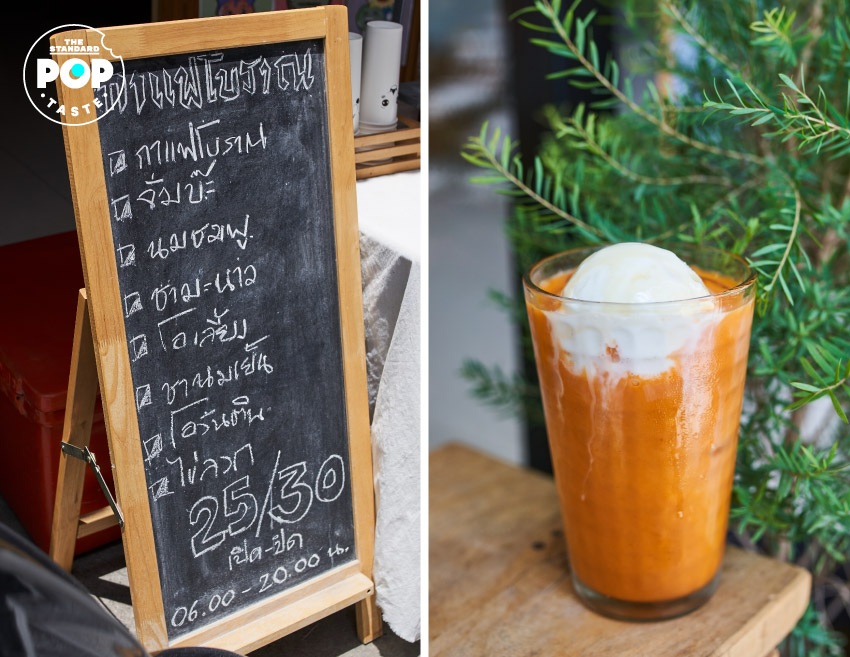 THE STANDARD
POP
TASTE
กาแฟโบราณ
กาแฟโบราณ
จ้ำบ๊ะ
นมชมพู
ชามะนาว
โอเลี้ยง
ชานมเย็น
โอวันติน
ไข่ลวก
25/30
เปิด-ปิด
06.00-20.00 น.